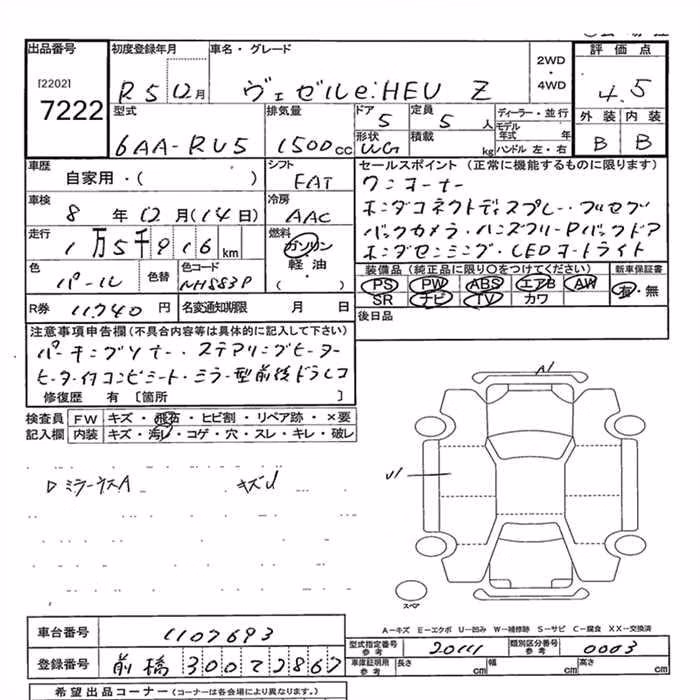 出品番号 初度登録年月 車名・グレード 2WD・4WD 評価点
[2202] 7222 R5 12月 ヴェゼルe:HEV Z 4.5
型式 排気量 ドア 定員 ディーラー・並行 外装 内装
6AA-RV5 1500cc 5 5人 モデル年式 年 B B
形状 積載 kg ハンドル 左・右
WG
車歴 シフト セールスポイント (正常に機能するものに限ります)
自家用・( ) FAT ワンオーナー
車検 冷房 ホンダコネクトディスプレー・フルセグ
8年12月(14日) AAC バックカメラ・ハンズフリーPバックドア
走行 燃料 ホンダセンシング・LEDヘッドライト
1万5千916km ガソリン・軽・油 ( )
装備品(純正品に限り○をつけてください) 新車保証書
色 色替 色コード PS PW ABS エアB AW 有・無
パール NH883P SR ナビ TV カワ
R券 11,740円 名変通知期限 月 日 後日品
注意事項申告欄(不具合内容等は具体的に記入して下さい)
パーキングソナー・ステアリングヒーター
ヒーター付コンビシート・ミラー型前後ドラレコ
修復歴 有 [箇所 ]
検査員 FW キズ・飛石・ヒビ割・リペア跡・×要
記入欄 内装 キズ・汚レ・コゲ・穴・スレ・キレ・破レ
A1
U1
キズU
スペア
A-キズ E-エクボ U-凹み W-補修跡 S-サビ C-腐食 XX-交換済
車台番号 1107693
型式指定番号 参考 20111 類別区分番号 参考 0003
登録番号 前橋 300 2867
車庫証明用 参考 長さ cm 幅 cm 高さ cm
希望出品コーナー (コーナーは各会場により異なります。)